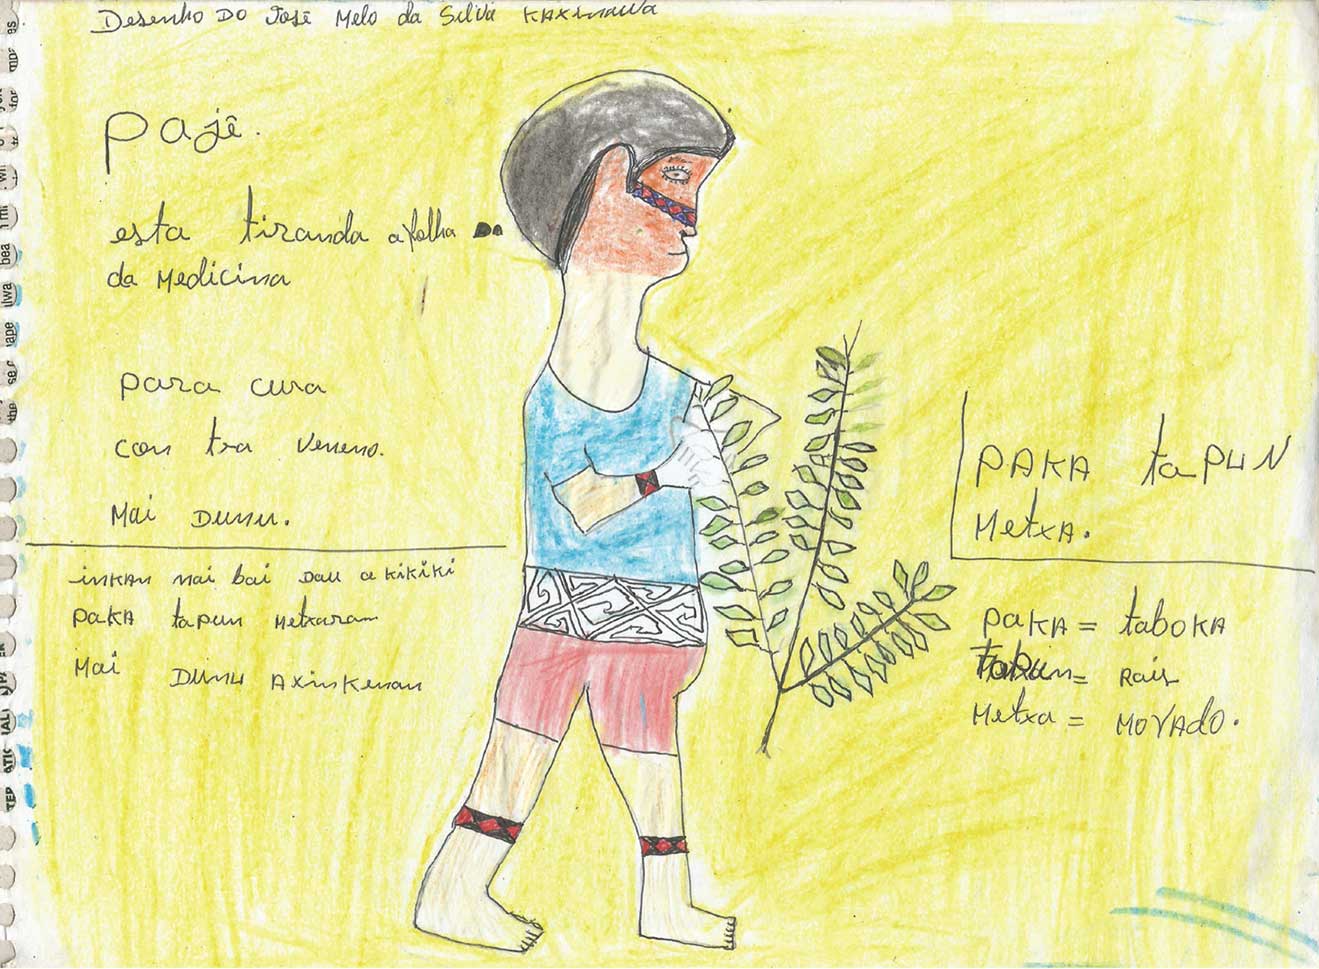 Desenho Do José Melo da Silva Kaxinawa
pajê.
esta tiranda a folha Do
da Medicina
para cura
con tra veneno.
Mai Dunu.
inKan nai bai Dau a KiKiKi
paKA tapun Metxaram
Mai Dunu AxinKenan
PAKA ta PUN
MetxA.
paKA = taboKA
= Rais
Metxa = MOVADO.